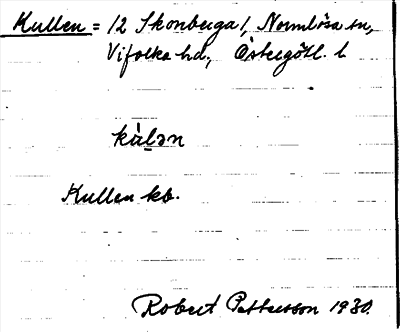 Kullen = 12 Skonberga 1, Normlösa sn,
Vifolka hd., Östergötl. l
kàl̠ən
Kullen kb.
Robert Pettersson 1930.